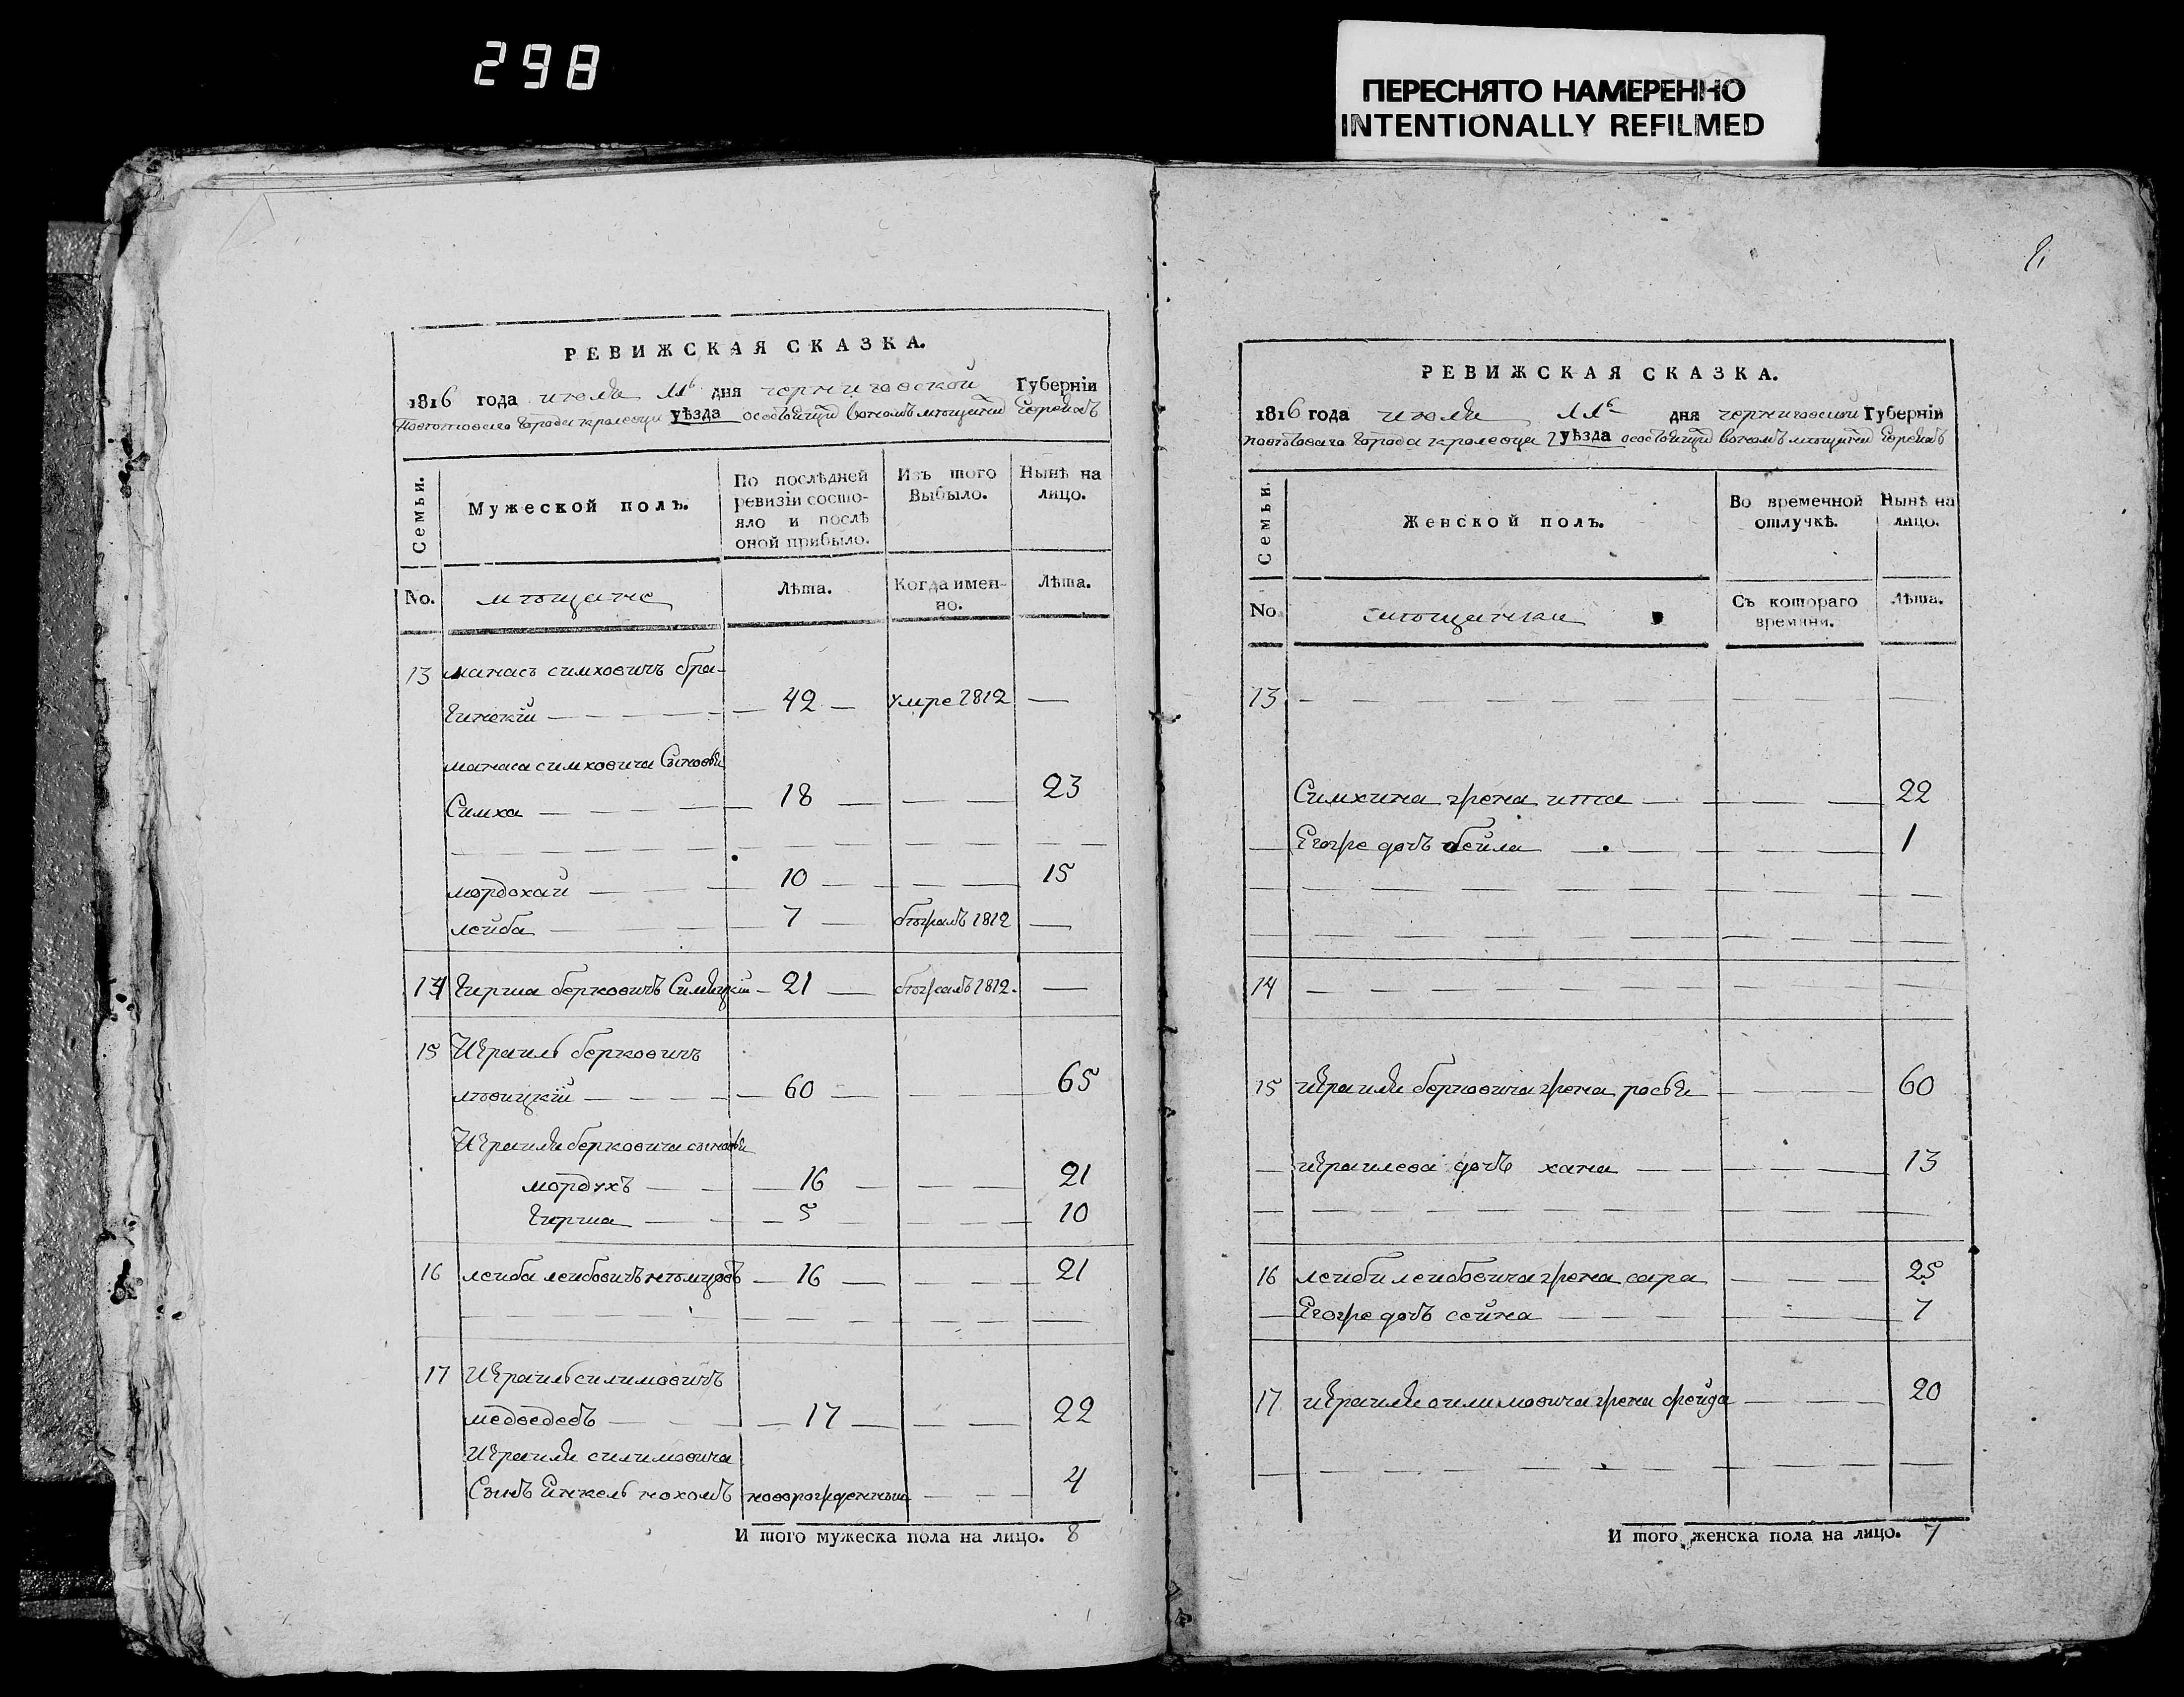 298
ПЕРЕСНЯТО НАМЕРЕННО
INTENTIONALLY REFILMED
РЕВИЖСКАЯ СКАЗКА.
1816 года июля дня черниговской Губерніи
города кролевца уѣзда о состоящихъ въ ономъ мѣщанъ Евреяхъ
Семьи.
Мужеской полъ.
По послѣдней ревизіи состо-
яло и послѣ оной прибыло.
Изъ того Выбыло.
Нынѣ на лицо.
No. мѣщане Лѣта. Когда имен-
но. Лѣта.
13 манась симховичъ бра-
гинскій — 42 — умре 1812 —
манаса симховича Сыновья
Симха — 18 — — 23
мордохай — 10 — — 15
лейба — 7 — бѣжалъ 1812 —
14 Гирша берковичъ — 21 — бѣжалъ 1812. —
15 Израиль берковичъ
— 60 — — 65
Израиля берковича сыновья
мордухъ — 16 — — 21
Гирша — 5 — — 10
16 лейба лейбовичъ — 16 — — 21
17 Израиль силимовичъ
медведевъ — 17 — — 22
Израиля силимовича
Сынъ Енкель нохомъ новорожденный — 4
И того мужеска пола на лицо. 8
РЕВИЖСКАЯ СКАЗКА.
1816 года июля дня черниговской Губерніи
города кролевца уѣзда о состоящихъ въ ономъ мѣщанъ Евреяхъ
Семьи.
Женской полъ.
Во временной отлучкѣ.
Нынѣ на лицо.
No. мѣщанки Съ котораго времяни. Лѣта.
13 — — —
Симхина жена итта — — 22
Егожъ дочь бейла — — 1
14 — — —
15 израиля берковича жена — — 60
израилева дочь хана — — 13
16 лейби лейбовича жена сара — — 25
Егоже дочь сейна — — 7
17 израиля силимовича жена фрейда — — 20
И того женска пола на лицо. 7